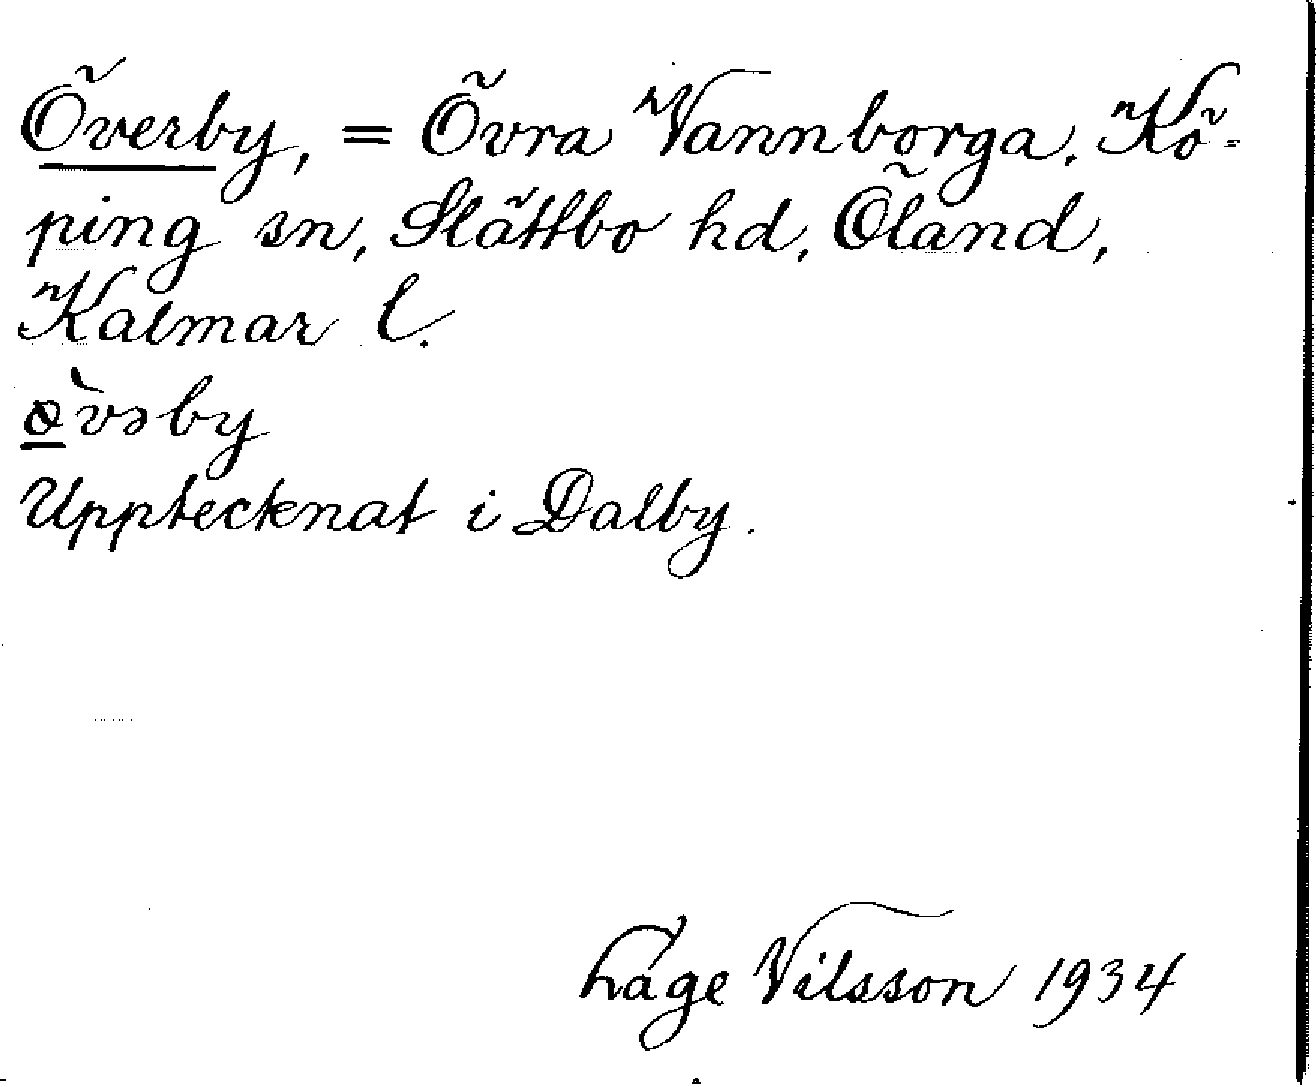 Överby, = Övra Vannborga, Kö-
ping sn, Slättbo hd, Öland,
Kalmar l.
ø̲̀vəby
Upptecknat i Dalby.
Låge Vilsson 1934